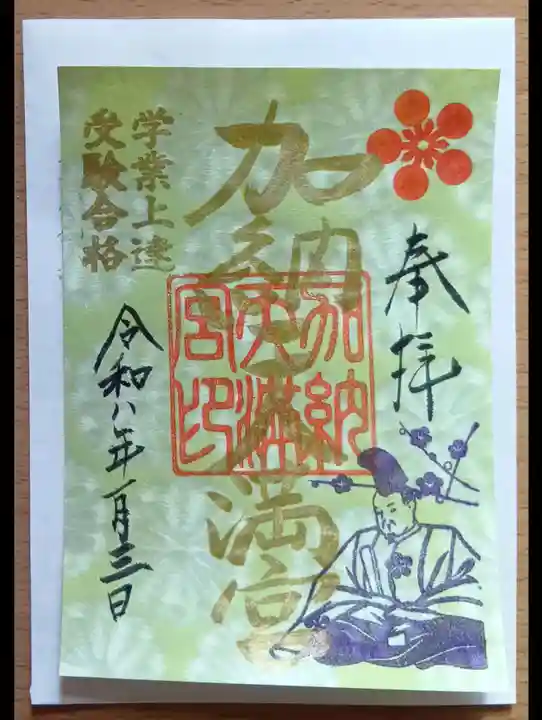 奉拝
加納天満宮
加納
天満
宮印
学業上達
受験合格
令和八年一月三日